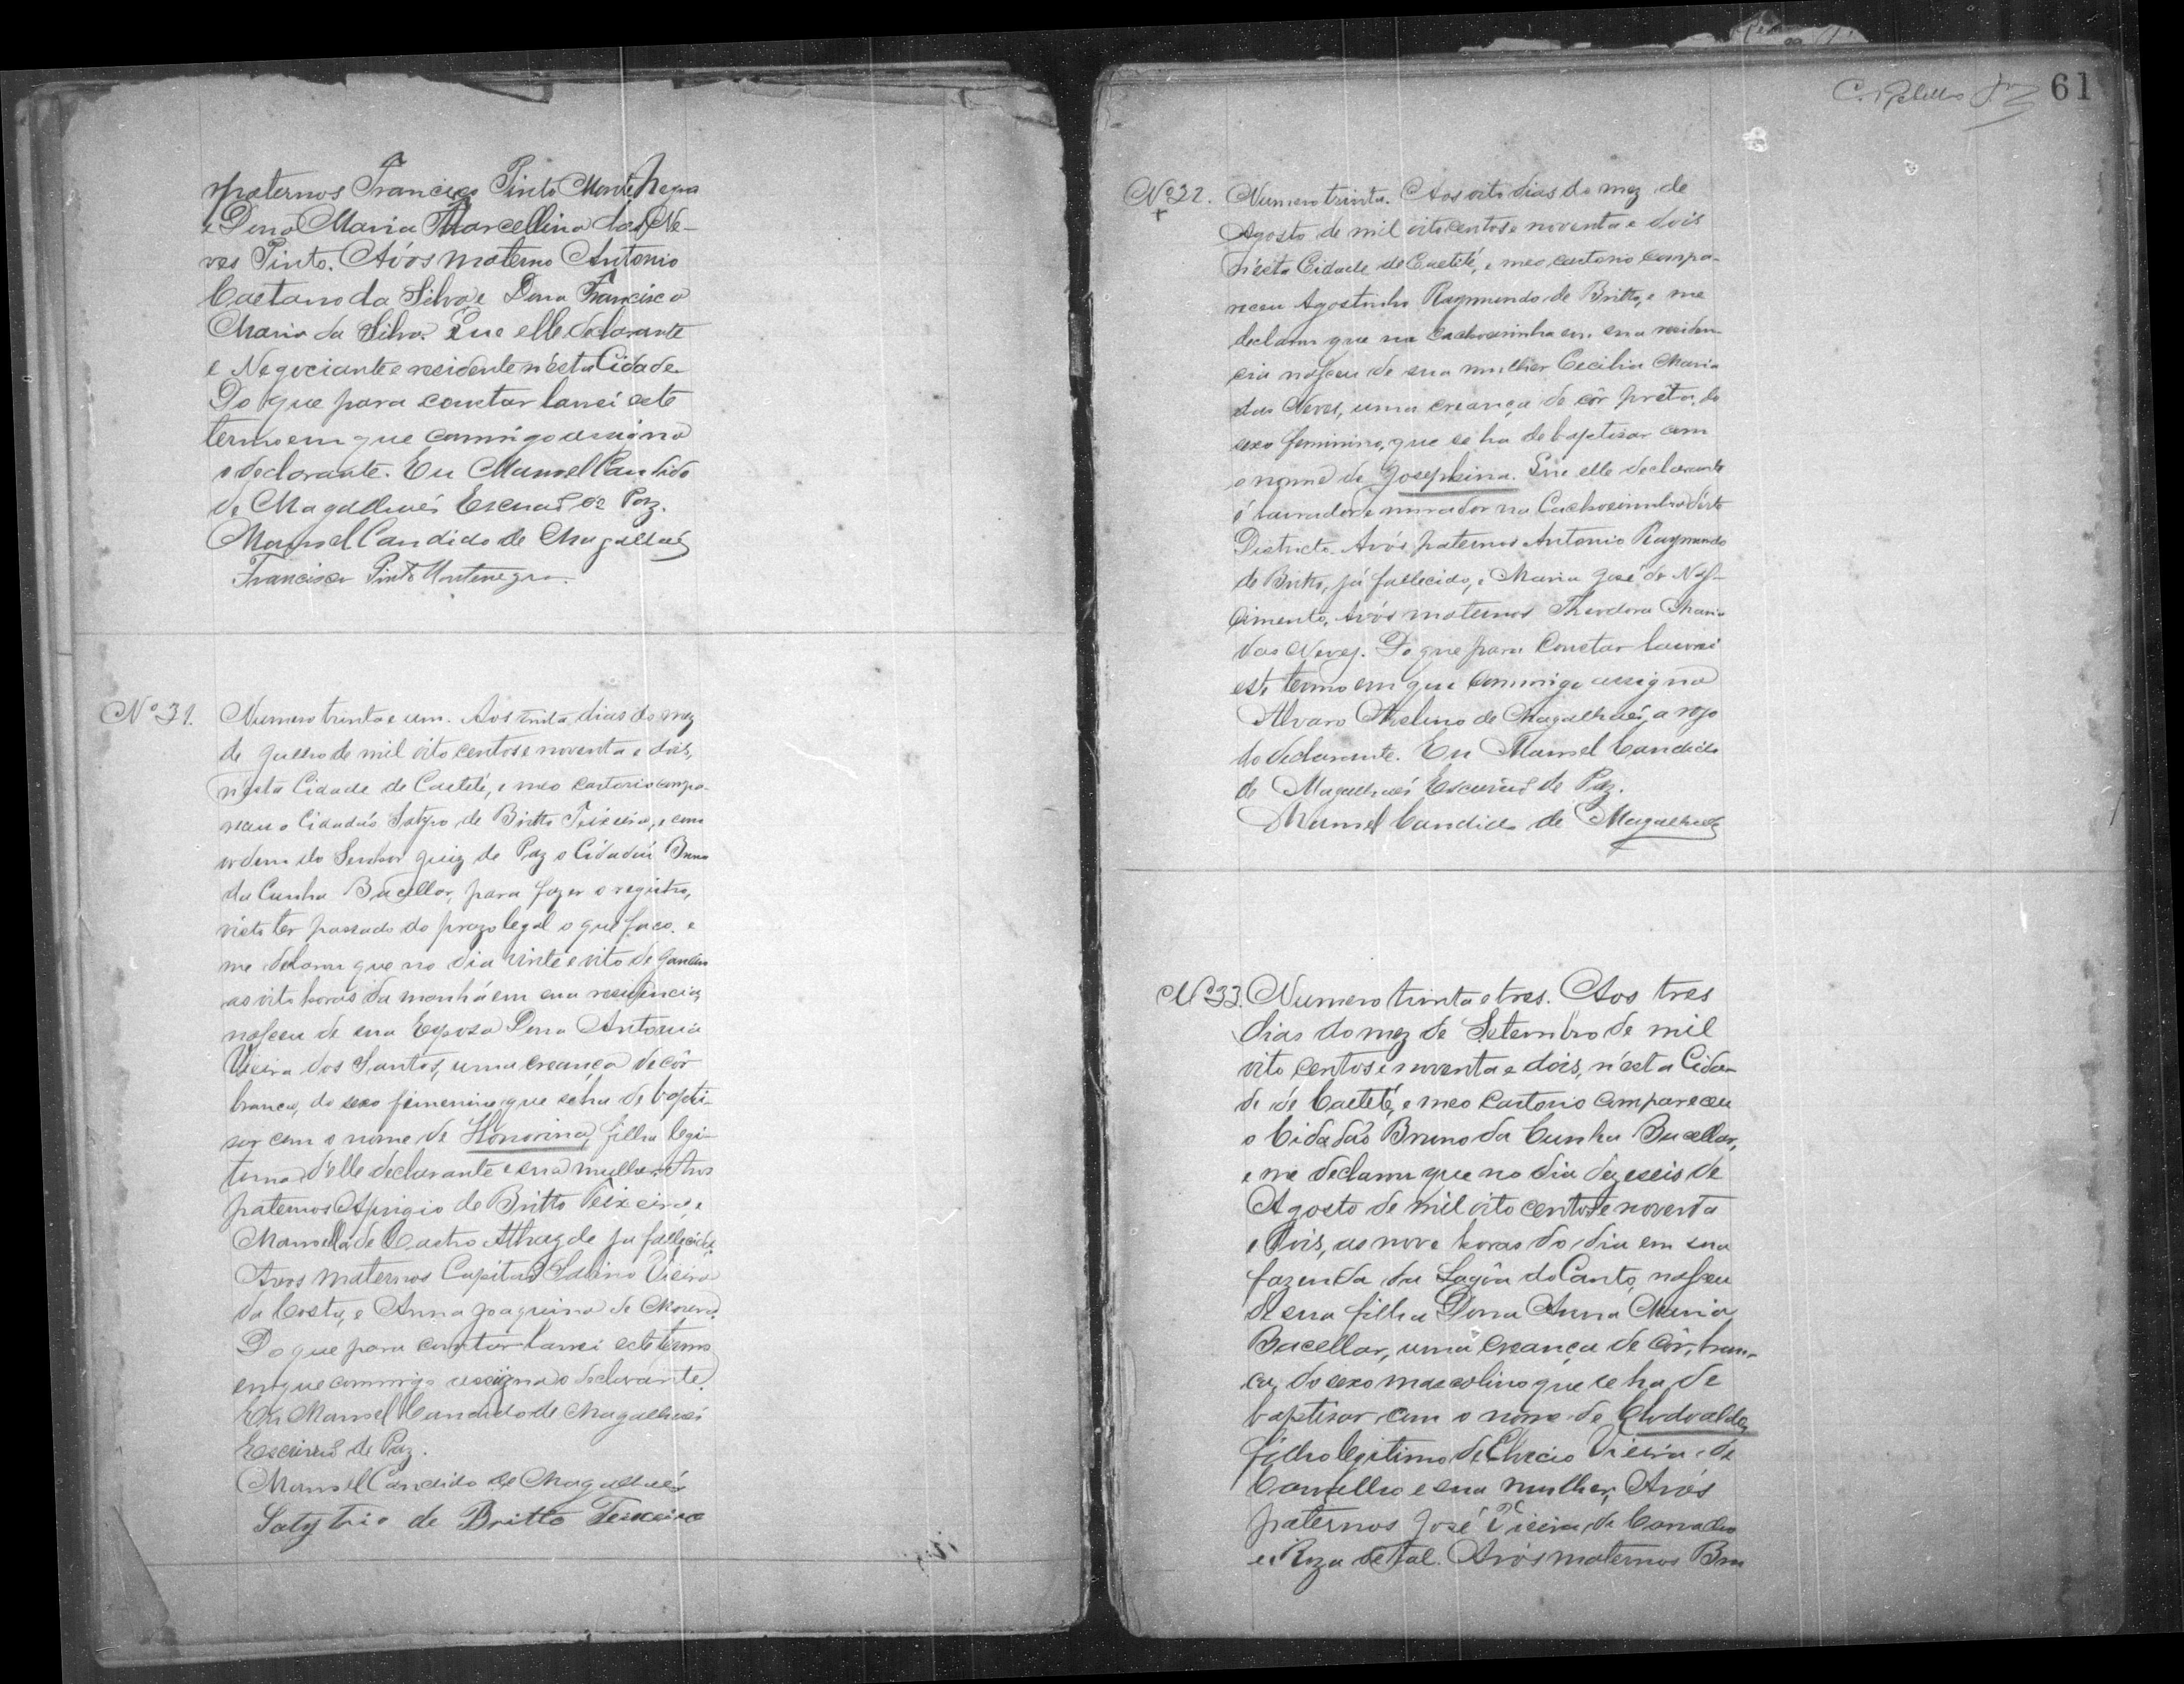 paternos Francisco Pinto Montenegro
e Dona Maria Marcellina das Ne-
ves Pinto. Avós materno Antonio
Caetano da Silva, e Dona Francisca
Maria da Silva. Que elle declarante
e Negociante e residente n'ésta Cidade.
Do que para constar lavrei este
termo em que commigo assigna
o declarante. Eu Manoel Candido
de Magalhaẽs Escrivaõ de Paz.
Manoel Candido de Magalhaẽs
Francisco Pinto Montenegro.
Nº 31. Numero trinta e um. Aos trinta dias do mez
de Julho de mil oito centos e noventa e dois,
n'ésta Cidade de Caeteté, e meo cartorio compa-
receu o Cidadaõ Satyro de Britto Teixeira, e com
ordem do Senhor Juiz de Paz o Cidadaõ Bruno
da Cunha Bacellar, para fazer o registro,
visto ter passado do prazo legal o que faço. e
me declarou que no dia vinte e oito de Janeiro
as oito horas da manhã em sua residencia,
nasceu de sua Esposa Dona Antonia
Vieira dos Santos, uma creança de côr
branca, do sexo femenino que se ha de bapti-
sar com o nome de Honorina, filha legi-
tima d'elle declarante e sua mulher. Avos
paternos Aprigio de Britto Teixeira, e
Manoella de Castro Athayde ja fallecida.
Avos maternos Capitaõ Sabino Vieira
da Costa, e Anna Joaquina de Moura.
Do que para constar lavrei este termo
em que commigo assigna o declarante.
Eu Manoel Candido de Magalhaẽs
Escrivaõ de Paz.
Manoel Candido de Magalhaẽs
Satytrio de Britto Teixeira
61
Nº 32. Numero trinta. Aos oito dias do mez de
Agosto de mil oito centos e noventa e dois
n'ésta Cidade de Caeteté, e meo cartorio compa-
receu Agostinho Raymundo de Britto, e me
declarou que na Cachoeirinha em sua residen-
cia nasceu de sua mulher Cecilia Maria
das Neves, uma creança de côr prêta, do
sexo feminino, que se ha de baptisar com
o nome de Josephina. Que elle declarante
é lavrador e morador na Cachoeirinha d'éste
Districto. Avós paternos Antonio Raymundo
de Britto, já fallecido, e Maria José do Nas-
cimento, Avós maternos Theodora Maria
das Neves. Do que para constar lavrei
este termo em que commigo assigna
Alvaro Avelino de Magalhaẽs, a rogo
do declarante. Eu Manoel Candido
de Magalhaẽs Escrivaõ de Paz.
Manoel Candido de Magalhaẽs
Nº 33. Numero trinta e tres. Aos tres
dias do mez de Setembro de mil
oito centos e noventa e dois, n'ésta Cida-
de de Caeteté, e meo Cartorio compareceu
o Cidadaõ Bruno da Cunha Bacellar,
e me declarou que no dia dezeseis de
Agosto de mil oito centos e noventa
e dois, as nove horas do dia em sua
fazenda da Lagôa do Canto, nasceu
de sua filha Dona Anna Maria
Bacellar, uma creança de côr bran-
ca, do sexo mascolino que se ha de
baptisar com o nome de Clodoaldo,
filho legitimo de Vieira de
e sua mulher, Avós
paternos José Vieira de
e Roza de tal. Avós maternos Bru